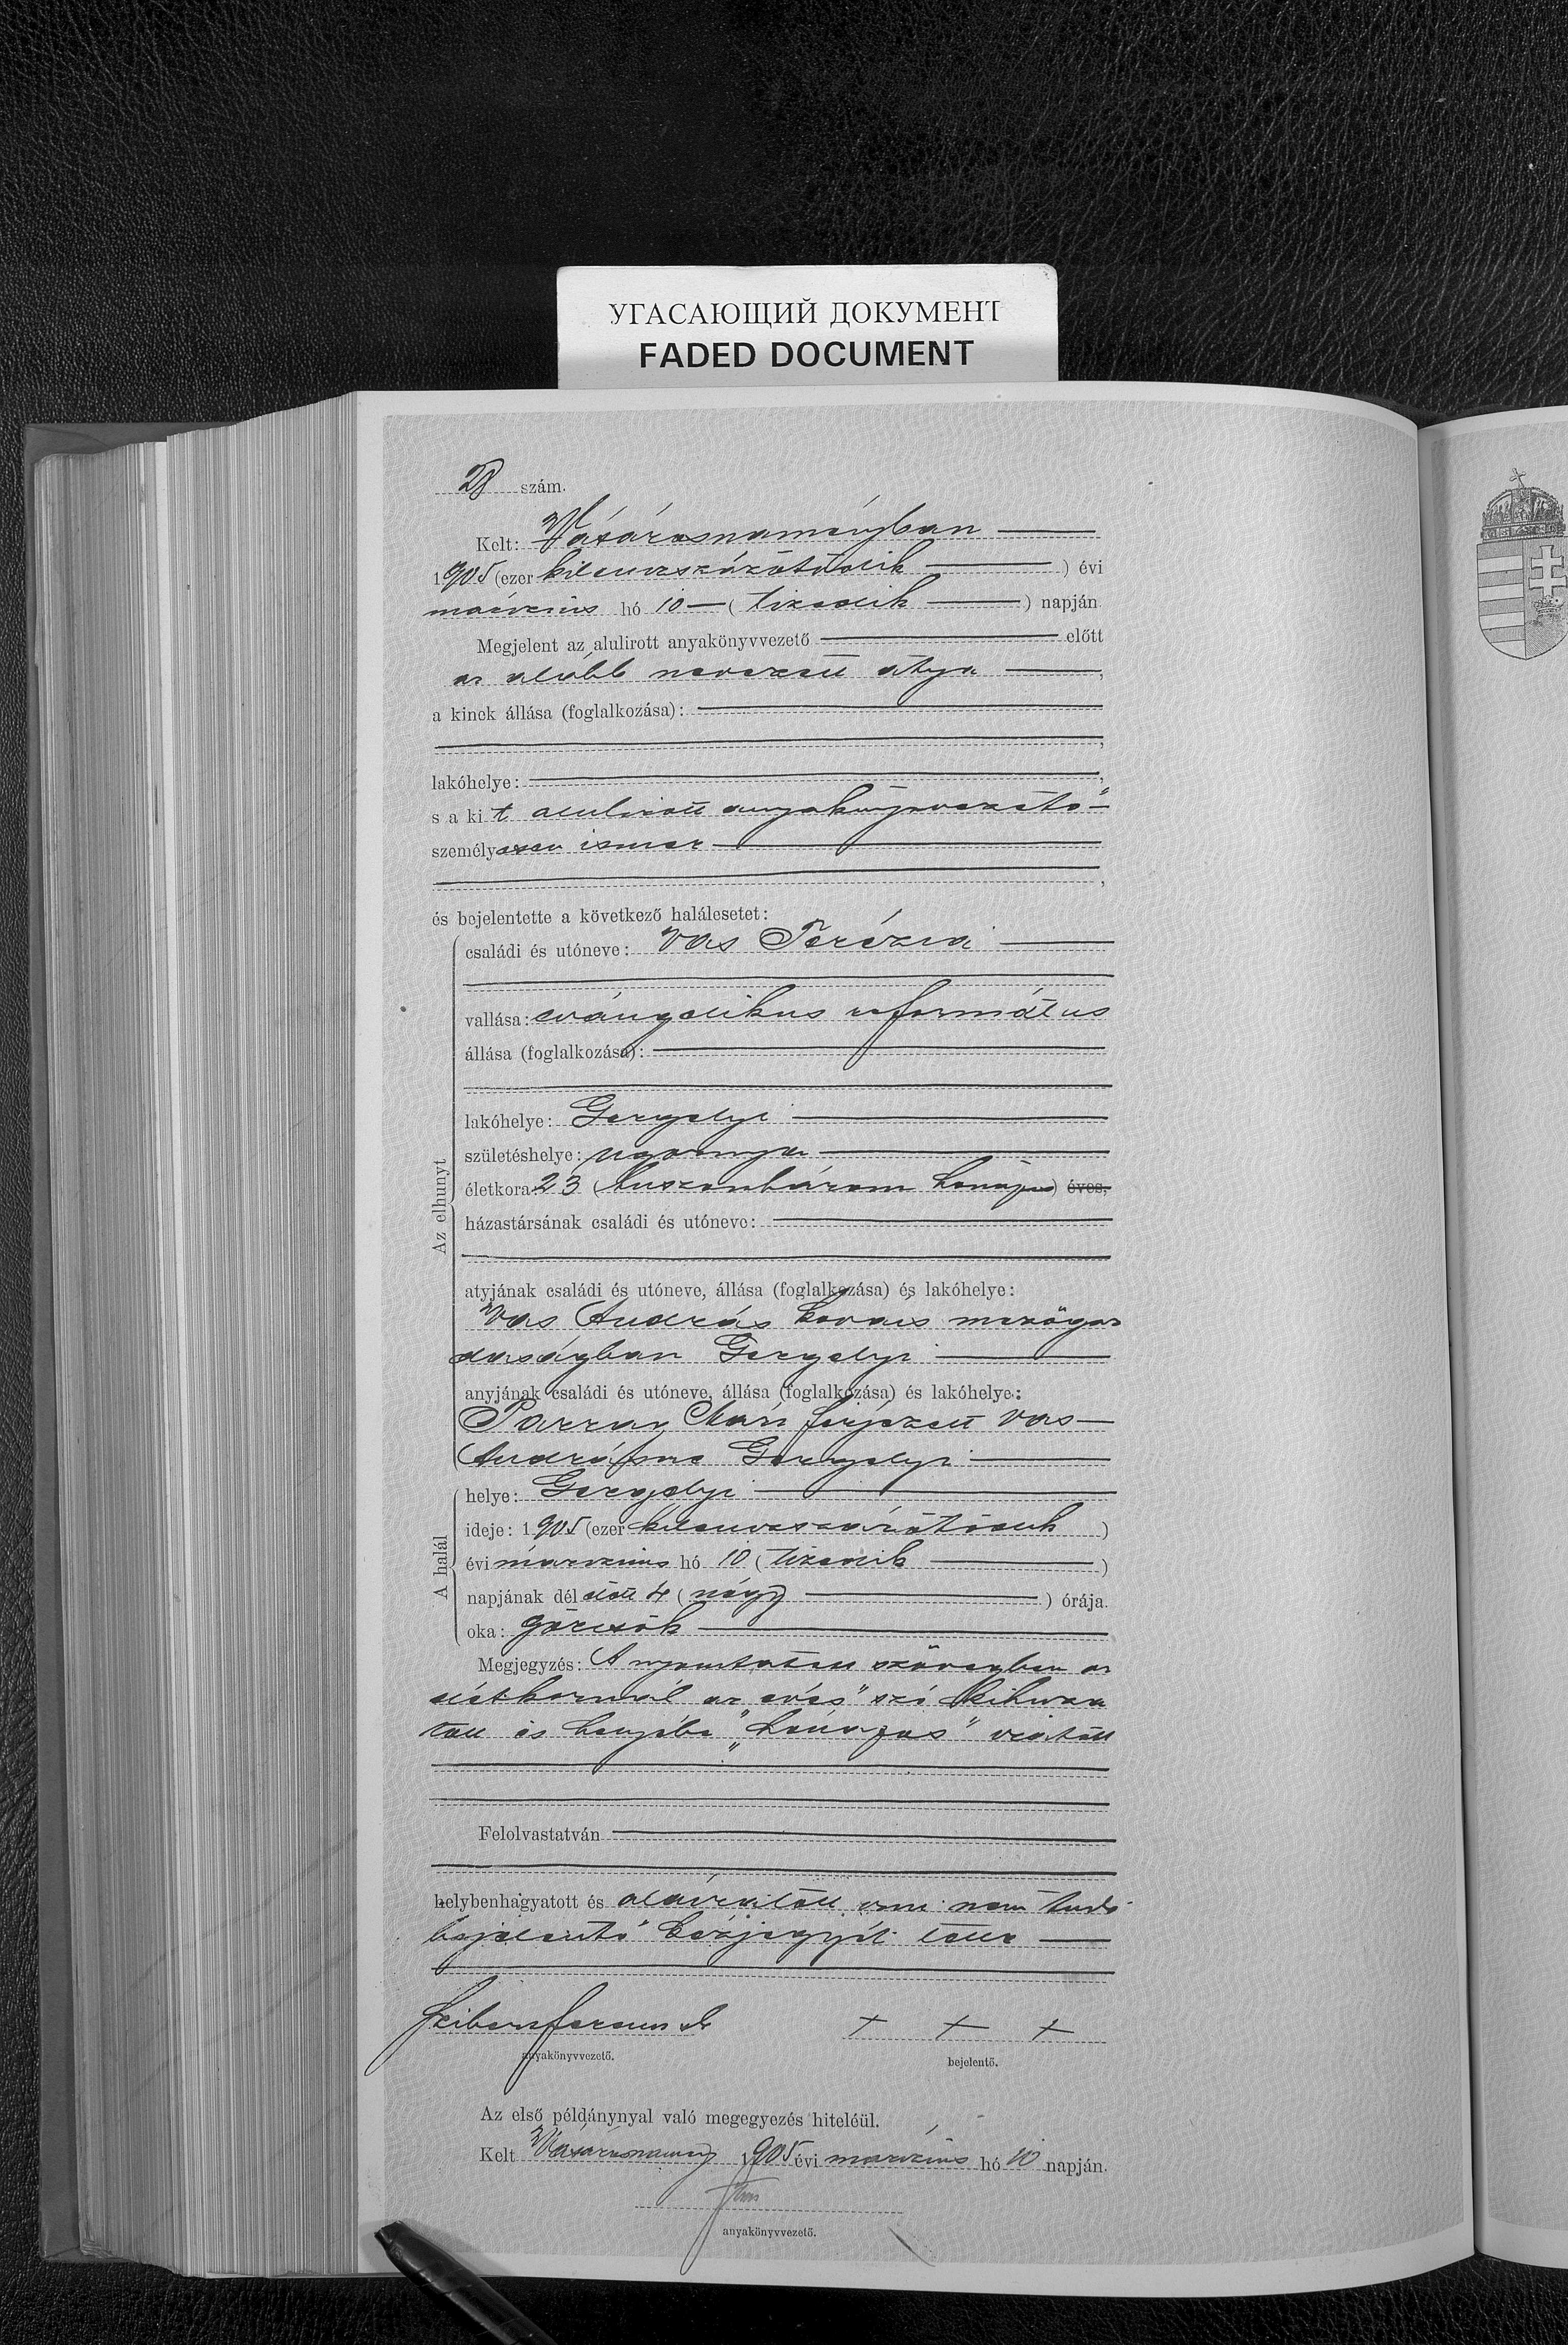 УГАСАЮЩИЙ ДОКУМЕНТ
FADED DOCUMENT
28 szám.
Kelt: Vásárosnaményban
1905 (ezer kilenczszázötödik ) évi
márczius hó 10 ( tizedik ) napján
Megjelent az alulirott anyakönyvvezető előtt
az alább nevezett atya ,
a kinek állása (foglalkozása):
,
lakóhelye: ,
s a kit alulirott anyakönyvvezető
személyesen ismer
,
és bejelentette a következő halálesetet:
Az elhunyt
családi és utóneve: Vas Terézia
vallása: evángelikus református
állása (foglalkozása):
lakóhelye: Gergelyi
születéshelye: ugyanaz
életkora: 23 (huszonhárom hónapos) éves,
házastársának családi és utóneve:
atyjának családi és utóneve, állása (foglalkozása) és lakóhelye:
Vas András kovács mezőgaz
daságban Gergelyi
anyjának családi és utóneve, állása (foglalkozása) és lakóhelye:
Mári férjezett Vas
Andrásne Gergelyi
A halál
helye: Gergelyi
ideje: 1905 (ezer kilenczszázötödik )
évi márczius hó 10 ( tizedik )
napjának dél előtt 4 ( négy ) órája.
oka: görcsök
Megjegyzés: A nyomtatott szövegben az
életkornál az "éves" szó kihuza
tott és helyébe "hónapos" iratott
Felolvastatván
helybenhagyatott és aláiratott, irni nem tudó
bejelentő kézjegyét tette
anyakönyvvezető.
+ + +
bejelentő.
Az első példánynyal való megegyezés hiteléül.
Kelt Vásárosnamény 1905 évi márczius hó 10 napján.
anyakönyvvezető.